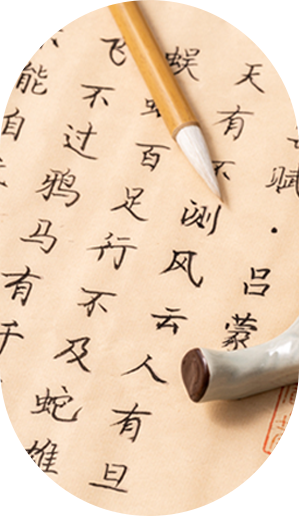 赋·吕蒙
天有不测风云人有旦
蜈百足行不及蛇雄
飞不过鸦马有千
能自